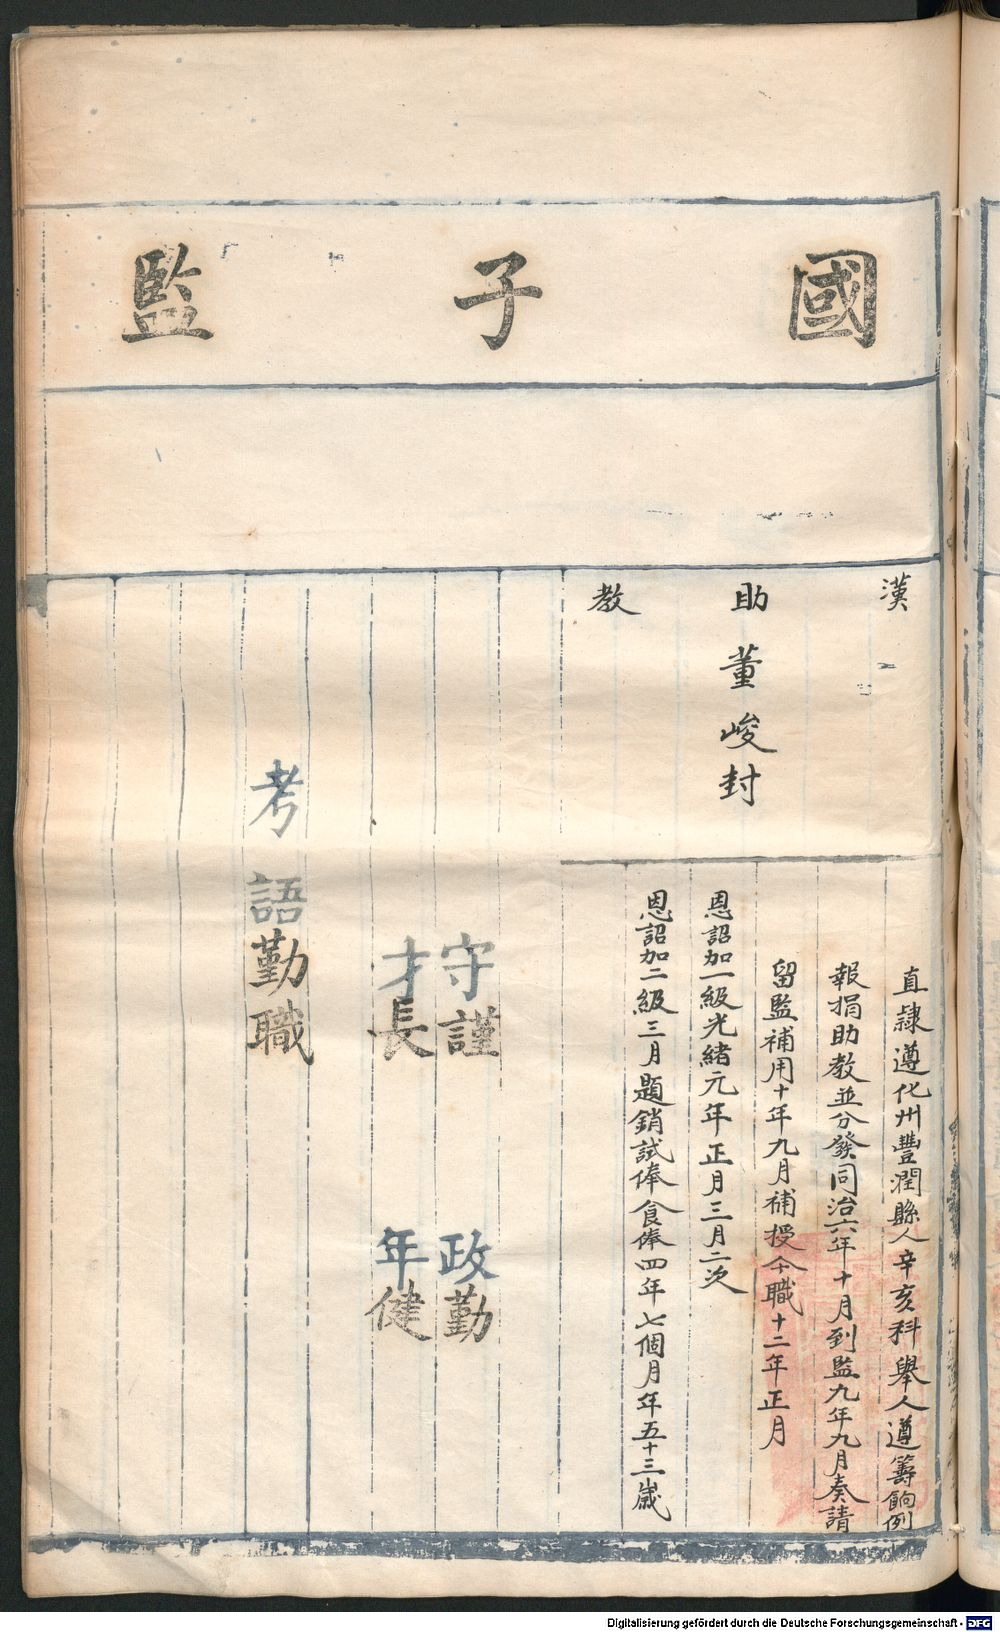 國子監
漢助教
董峻封
直隸遵化州豐潤縣人辛亥科舉人遵籌餉例
報捐助教並分發同治六年十月到監九年九月奏請
留監補用十年九月補授今職十二年正月
恩詔加一級光緒元年正月三月二次
恩詔加二級三月題銷試俸食俸四年七個月年五十三歲
守謹 政勤
才長 年健
考語勤職
Digitalisierung gefördert durch die Deutsche Forschungsgemeinschaft - DFG